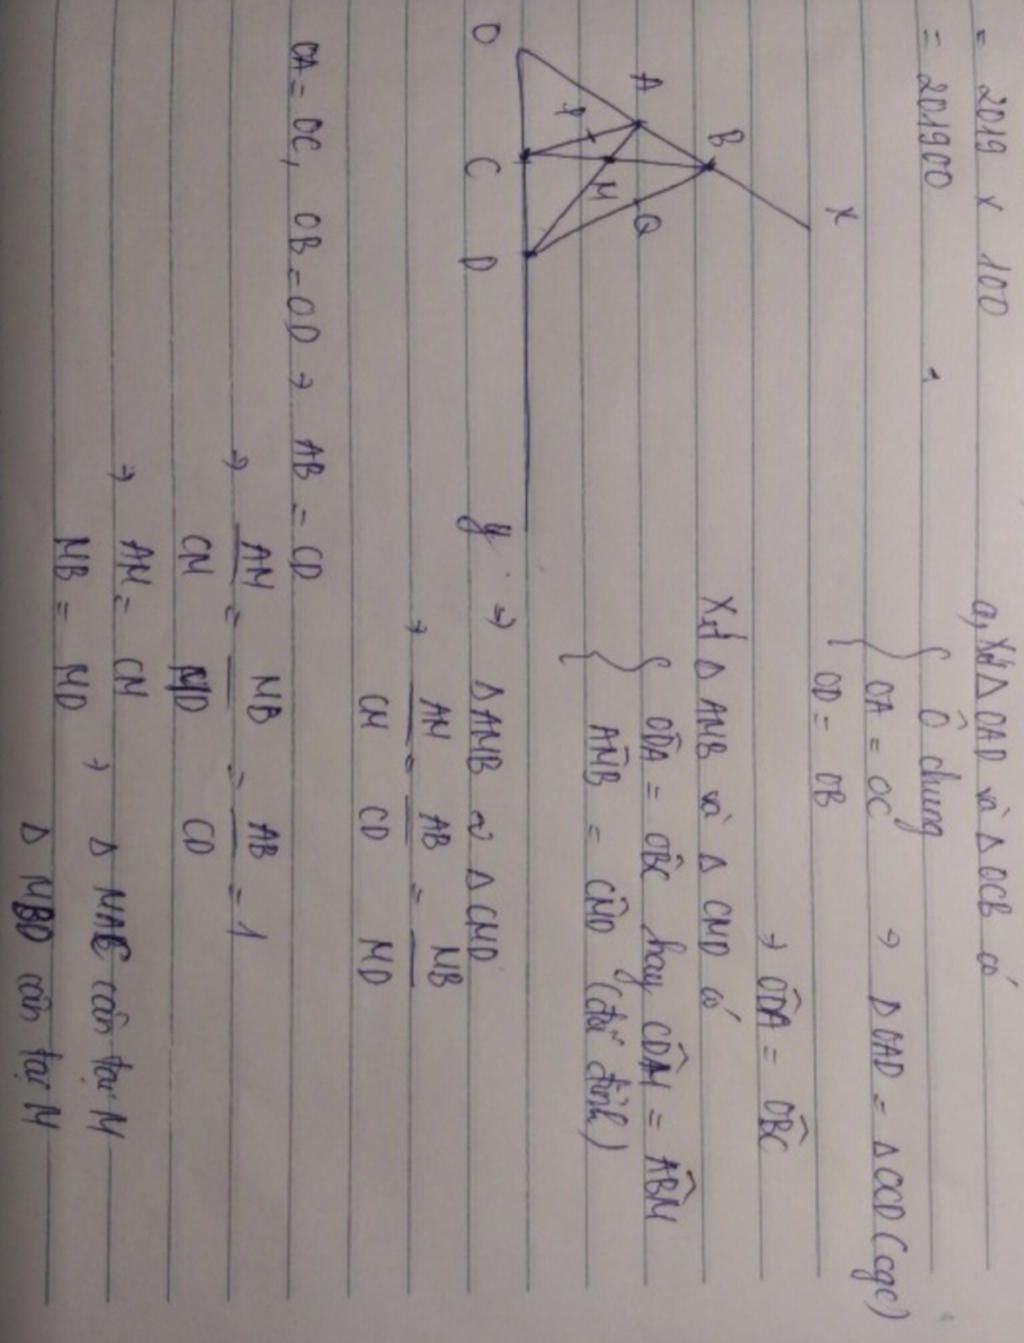 = 2019 x 100
= 201900
a, Xét Δ OAD và Δ OCB có
Ô chung
OA = OC → Δ OAD = Δ OCD (cgc)
OD = OB
→ ODA = OBC
Xét Δ AMB và Δ CMD có
ODA = OBC hay CDM = ABM
AMB = CMD (đối đỉnh)
x
B
A
Q
P
M
O
C
D
y
→ Δ AMB ~ Δ CMD
→ AM/CM = AB/CD = MB/MD
OA = OC, OB = OD → AB = CD
→ AM/CM = MB/MD = AB/CD = 1
→ AM = CM → Δ MAC cân tại M
MB = MD Δ MBD cân tại M